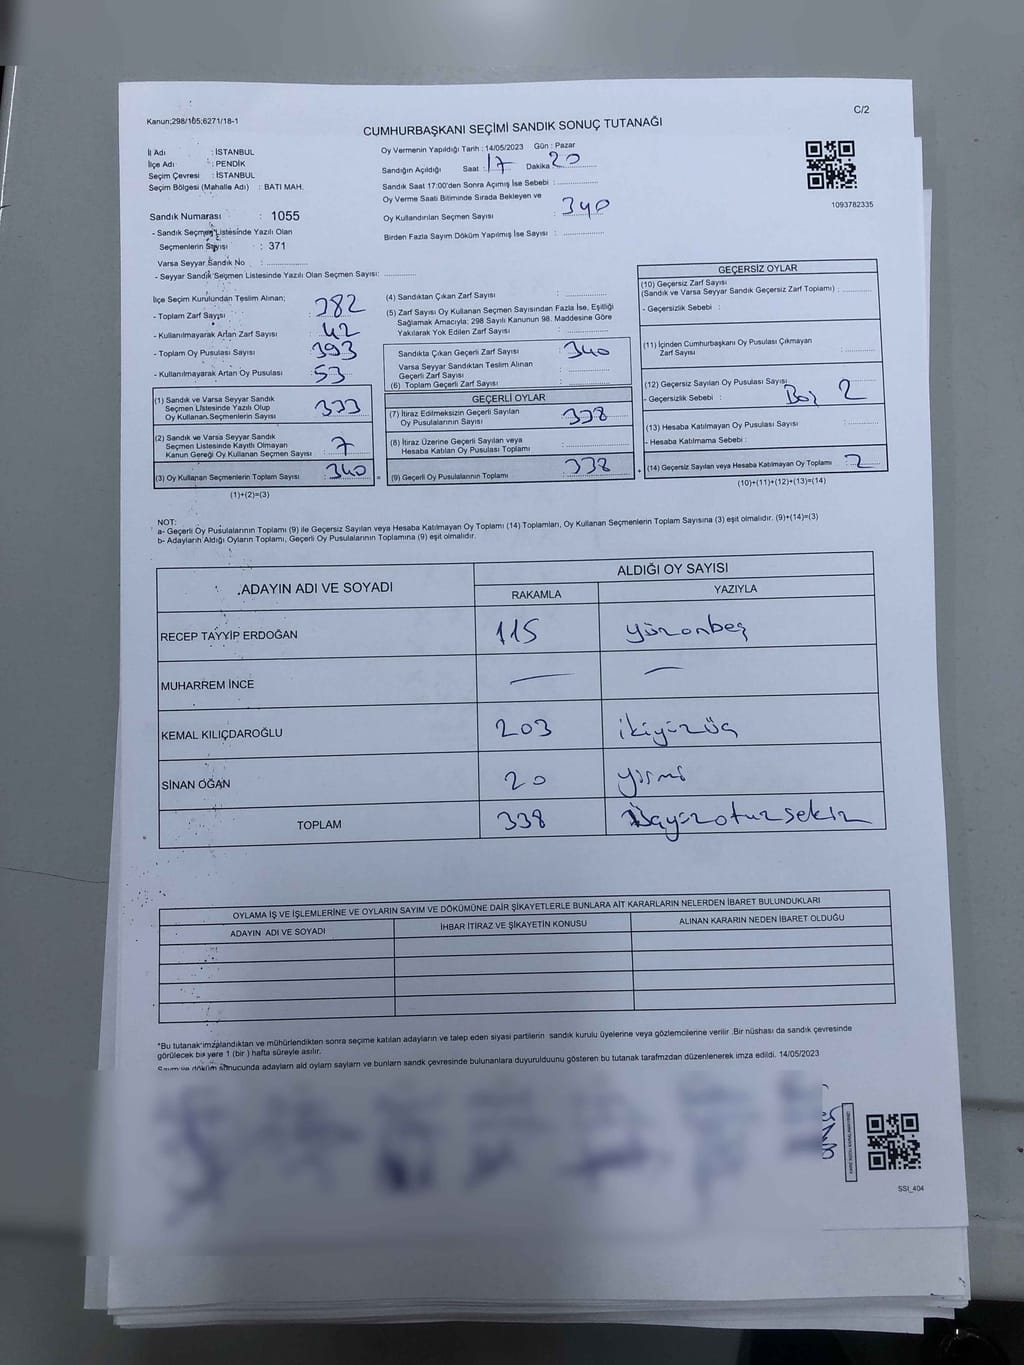 C/2
Kanun;298/105;6271/18-1
CUMHURBAŞKANI SEÇİMİ SANDIK SONUÇ TUTANAĞI
İl Adı : İSTANBUL
İlçe Adı : PENDİK
Seçim Çevresi : İSTANBUL
Seçim Bölgesi (Mahalle Adı) : BATI MAH.
Sandık Numarası : 1055
- Sandık Seçmen Listesinde Yazılı Olan
Seçmenlerin Sayısı : 371
Varsa Seyyar Sandık No :
- Seyyar Sandık Seçmen Listesinde Yazılı Olan Seçmen Sayısı:
Oy Vermenin Yapıldığı Tarih : 14/05/2023 Gün : Pazar
Sandığın Açıldığı Saat : 17 Dakika 20
Sandık Saat 17:00'den Sonra Açımış İse Sebebi :
Oy Verme Saati Bitiminde Sırada Bekleyen ve
Oy Kullandırılan Seçmen Sayısı : 340
Birden Fazla Sayım Döküm Yapılmış İse Sayısı :
1093782335
İlçe Seçim Kurulundan Teslim Alınan;
- Toplam Zarf Sayısı : 382
- Kullanılmayarak Artan Zarf Sayısı : 42
- Toplam Oy Pusulası Sayısı : 393
- Kullanılmayarak Artan Oy Pusulası : 53
(1) Sandık ve Varsa Seyyar Sandık
Seçmen Listesinde Yazılı Olup
Oy Kullanan Seçmenlerin Sayısı : 333
(2) Sandık ve Varsa Seyyar Sandık
Seçmen Listesinde Kayıtlı Olmayan
Kanun Gereği Oy Kullanan Seçmen Sayısı : 7
(3) Oy Kullanan Seçmenlerin Toplam Sayısı : 340
(1)+(2)=(3)
=
(4) Sandıktan Çıkan Zarf Sayısı :
(5) Zarf Sayısı Oy Kullanan Seçmen Sayısından Fazla İse, Eşitliği
Sağlamak Amacıyla; 298 Sayılı Kanunun 98. Maddesine Göre
Yakılarak Yok Edilen Zarf Sayısı :
Sandıkta Çıkan Geçerli Zarf Sayısı : 340
Varsa Seyyar Sandıktan Teslim Alınan
Geçerli Zarf Sayısı :
(6) Toplam Geçerli Zarf Sayısı :
GEÇERLİ OYLAR
(7) İtiraz Edilmeksizin Geçerli Sayılan
Oy Pusulalarının Sayısı : 338
(8) İtiraz Üzerine Geçerli Sayılan veya
Hesaba Katılan Oy Pusulası Toplamı :
(9) Geçerli Oy Pusulalarının Toplamı : 338
+
GEÇERSİZ OYLAR
(10) Geçersiz Zarf Sayısı
(Sandık ve Varsa Seyyar Sandık Geçersiz Zarf Toplamı) :
- Geçersizlik Sebebi :
(11) İçinden Cumhurbaşkanı Oy Pusulası Çıkmayan
Zarf Sayısı :
(12) Geçersiz Sayılan Oy Pusulası Sayısı :
- Geçersizlik Sebebi : Boş 2
(13) Hesaba Katılmayan Oy Pusulası Sayısı :
- Hesaba Katılmama Sebebi :
(14) Geçersiz Sayılan veya Hesaba Katılmayan Oy Toplamı : 2
(10)+(11)+(12)+(13)=(14)
NOT:
a- Geçerli Oy Pusulalarının Toplamı (9) ile Geçersiz Sayılan veya Hesaba Katılmayan Oy Toplamı (14) Toplamları, Oy Kullanan Seçmenlerin Toplam Sayısına (3) eşit olmalıdır. (9)+(14)=(3)
b- Adayların Aldığı Oyların Toplamı, Geçerli Oy Pusulalarının Toplamına (9) eşit olmalıdır.
ADAYIN ADI VE SOYADI ALDIĞI OY SAYISI
RAKAMLA YAZIYLA
RECEP TAYYİP ERDOĞAN 115 yüzonbeş
MUHARREM İNCE — —
KEMAL KILIÇDAROĞLU 203 ikiyüzüç
SİNAN OĞAN 20 yirmi
TOPLAM 338 üçyüzotuzsekiz
OYLAMA İŞ VE İŞLEMLERİNE VE OYLARIN SAYIM VE DÖKÜMÜNE DAİR ŞİKAYETLERLE BUNLARA AİT KARARLARIN NELERDEN İBARET BULUNDUKLARI
ADAYIN ADI VE SOYADI İHBAR İTİRAZ VE ŞİKAYETİN KONUSU ALINAN KARARIN NEDEN İBARET OLDUĞU
*Bu tutanak imzalandıktan ve mühürlendikten sonra seçime katılan adayların ve talep eden siyasi partilerin sandık kurulu üyelerine veya gözlemcilerine verilir .Bir nüshası da sandık çevresinde
görülecek bir yere 1 (bir ) hafta süreyle asılır.
Sayım ve döküm sonucunda adayların ald oyların sayların ve bunların sandk çevresinde bulunanlara duyurulduunu gösteren bu tutanak tarafmzdan düzenlenerek imza edildi. 14/05/2023
SSI_404